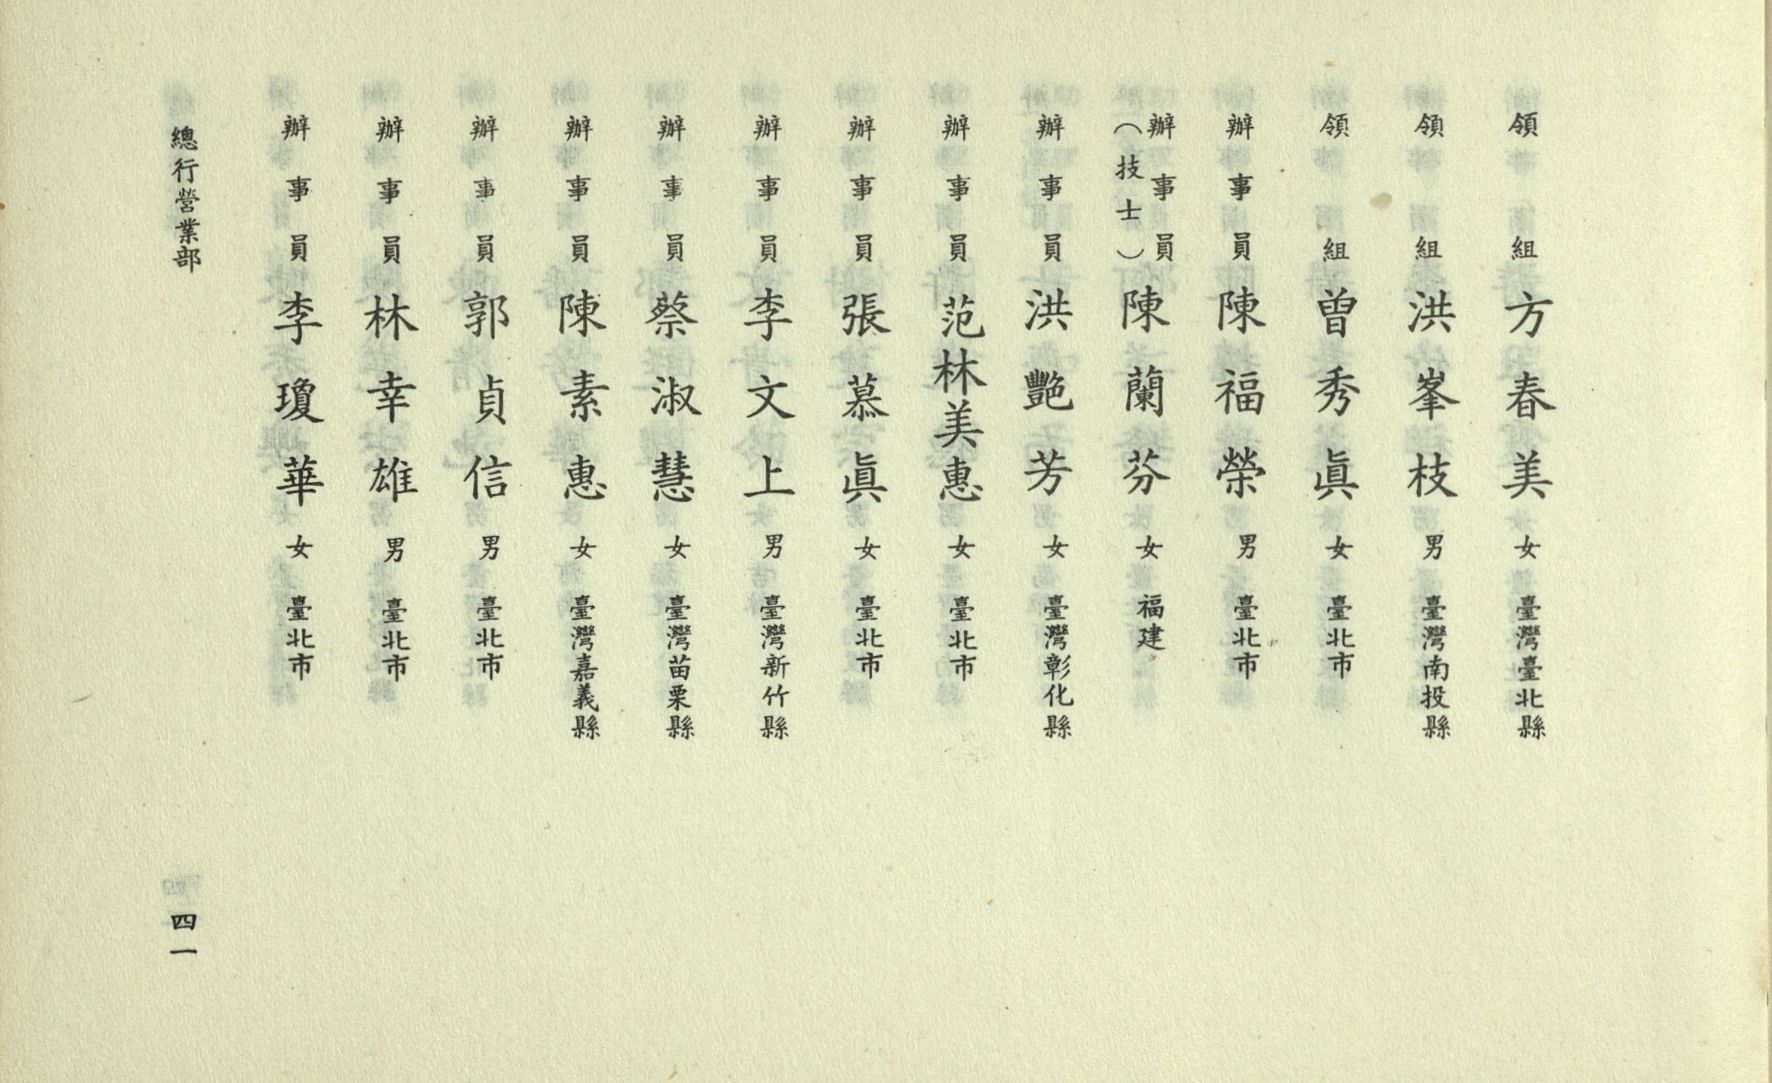 領組 方春美 女 臺灣臺北縣
領組 洪峯枝 男 臺灣南投縣
領組 曾秀眞 女 臺北市
辦事員 陳福榮 男 臺北市
辦事員（技士） 陳蘭芬 女 福建
辦事員 洪艷芳 女 臺灣彰化縣
辦事員 范林美惠 女 臺北市
辦事員 張慕眞 女 臺北市
辦事員 李文上 男 臺灣新竹縣
辦事員 蔡淑慧 女 臺灣苗栗縣
辦事員 陳素惠 女 臺灣嘉義縣
辦事員 郭貞信 男 臺北市
辦事員 林幸雄 男 臺北市
辦事員 李瓊華 女 臺北市
總行營業部 四一